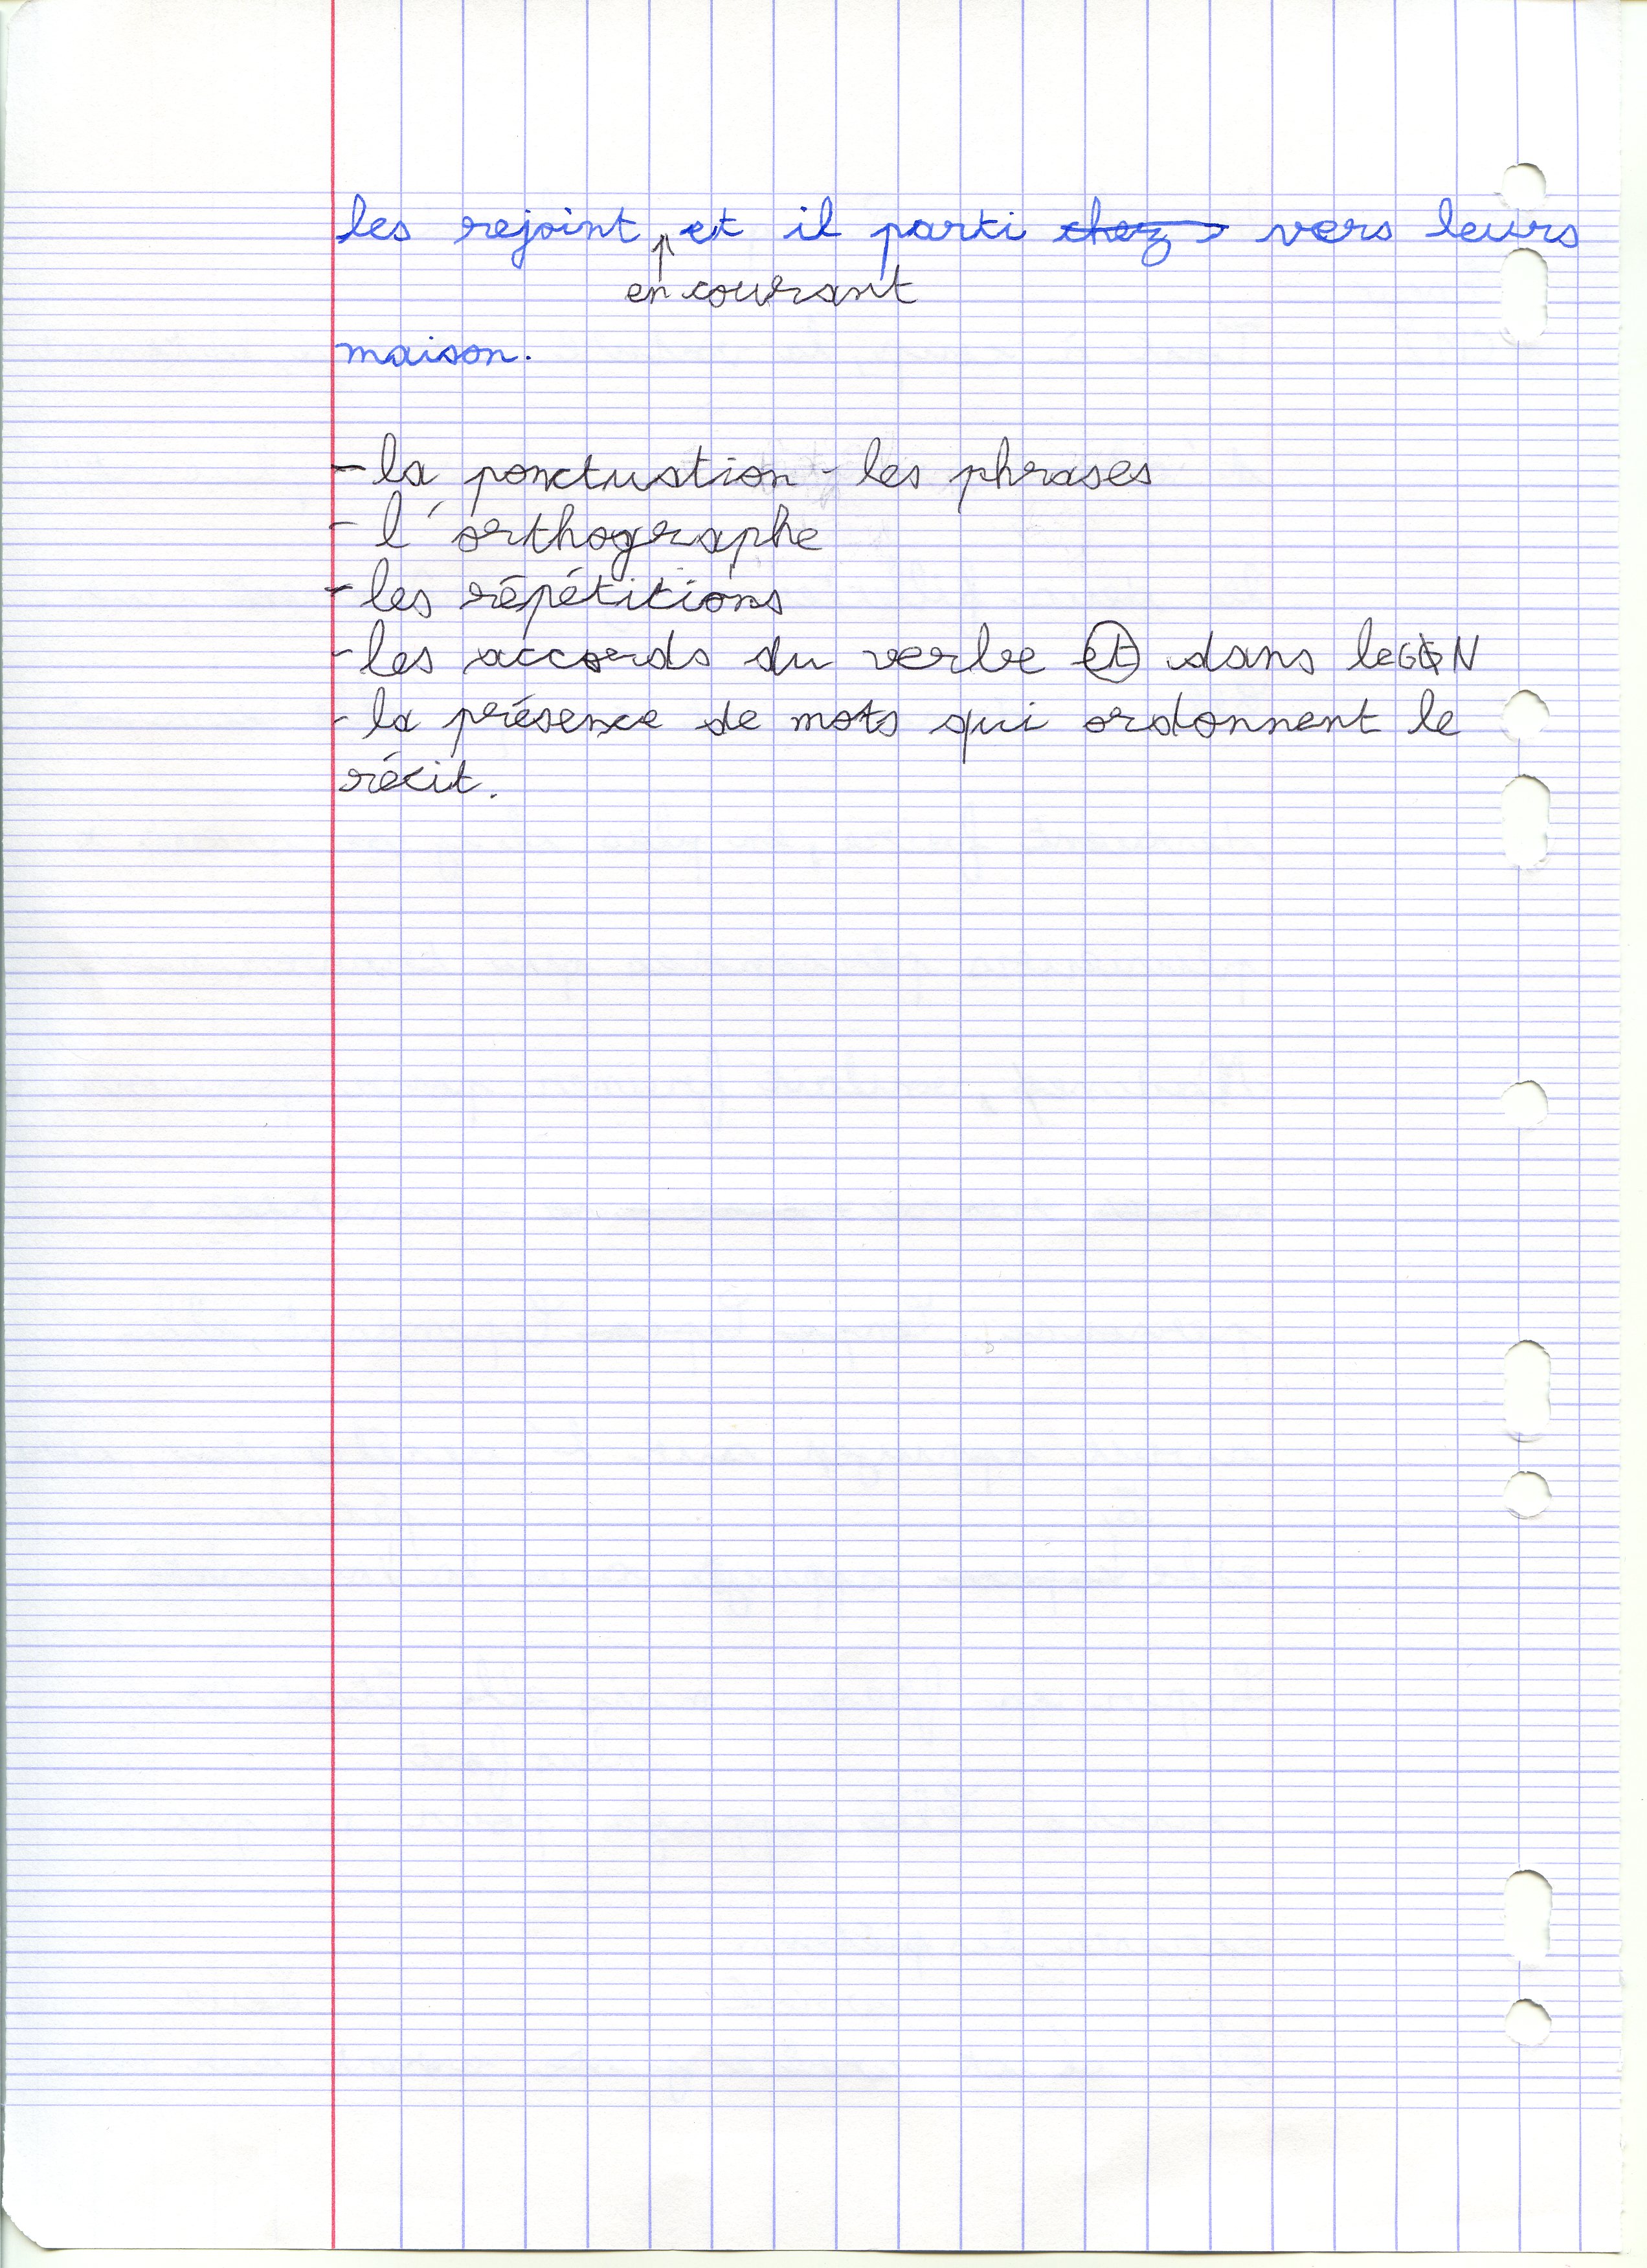 les rejoint et il parti chez vers leurs
en courant
maison.
- la ponctuation - les phrases
- l'orthographe
- les répétitions
- les accords du verbe et dans le GN
- la présence de mots qui ordonnent le
récit.